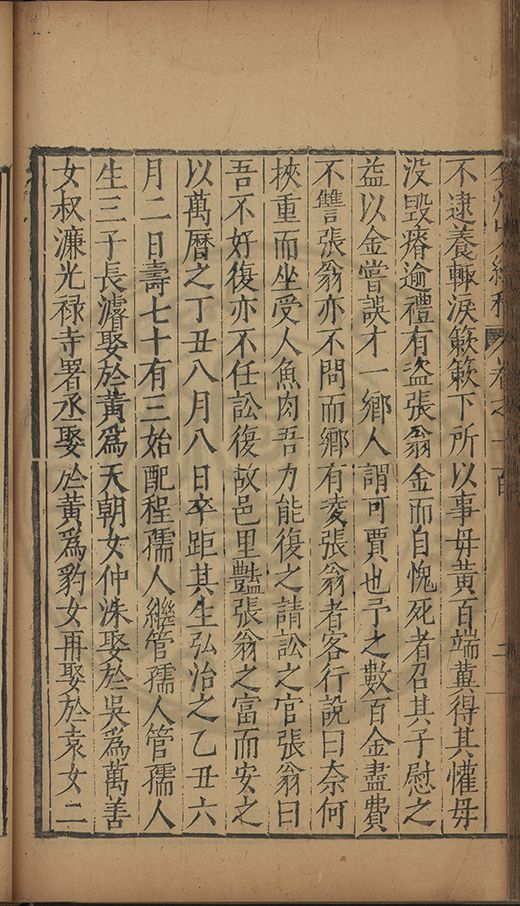 不逮養輙淚簌簌下所以事毋黃百端冀得其懽毋
没毀瘠逾禮有盜張翁金而自愧死者召其子慰之
益以金嘗誤才一鄉人謂可賈也予之數百金盡費
不讐張翁亦不問而鄉有夌張翁者客行說曰奈何
挾重而坐受人魚肉吾力能復之請訟之官張翁曰
吾不好復亦不任訟復故邑里豔張翁之富而安之
以萬曆之丁丑八月八日卒距其生弘治之乙丑六
月二日壽七十有三始配程孺人繼管孺人管孺人
生三子長濬娶於黃爲天朝女仲洙娶於吳爲萬善
女叔濂光禄寺署丞娶於黃爲豹女再娶於袁女二